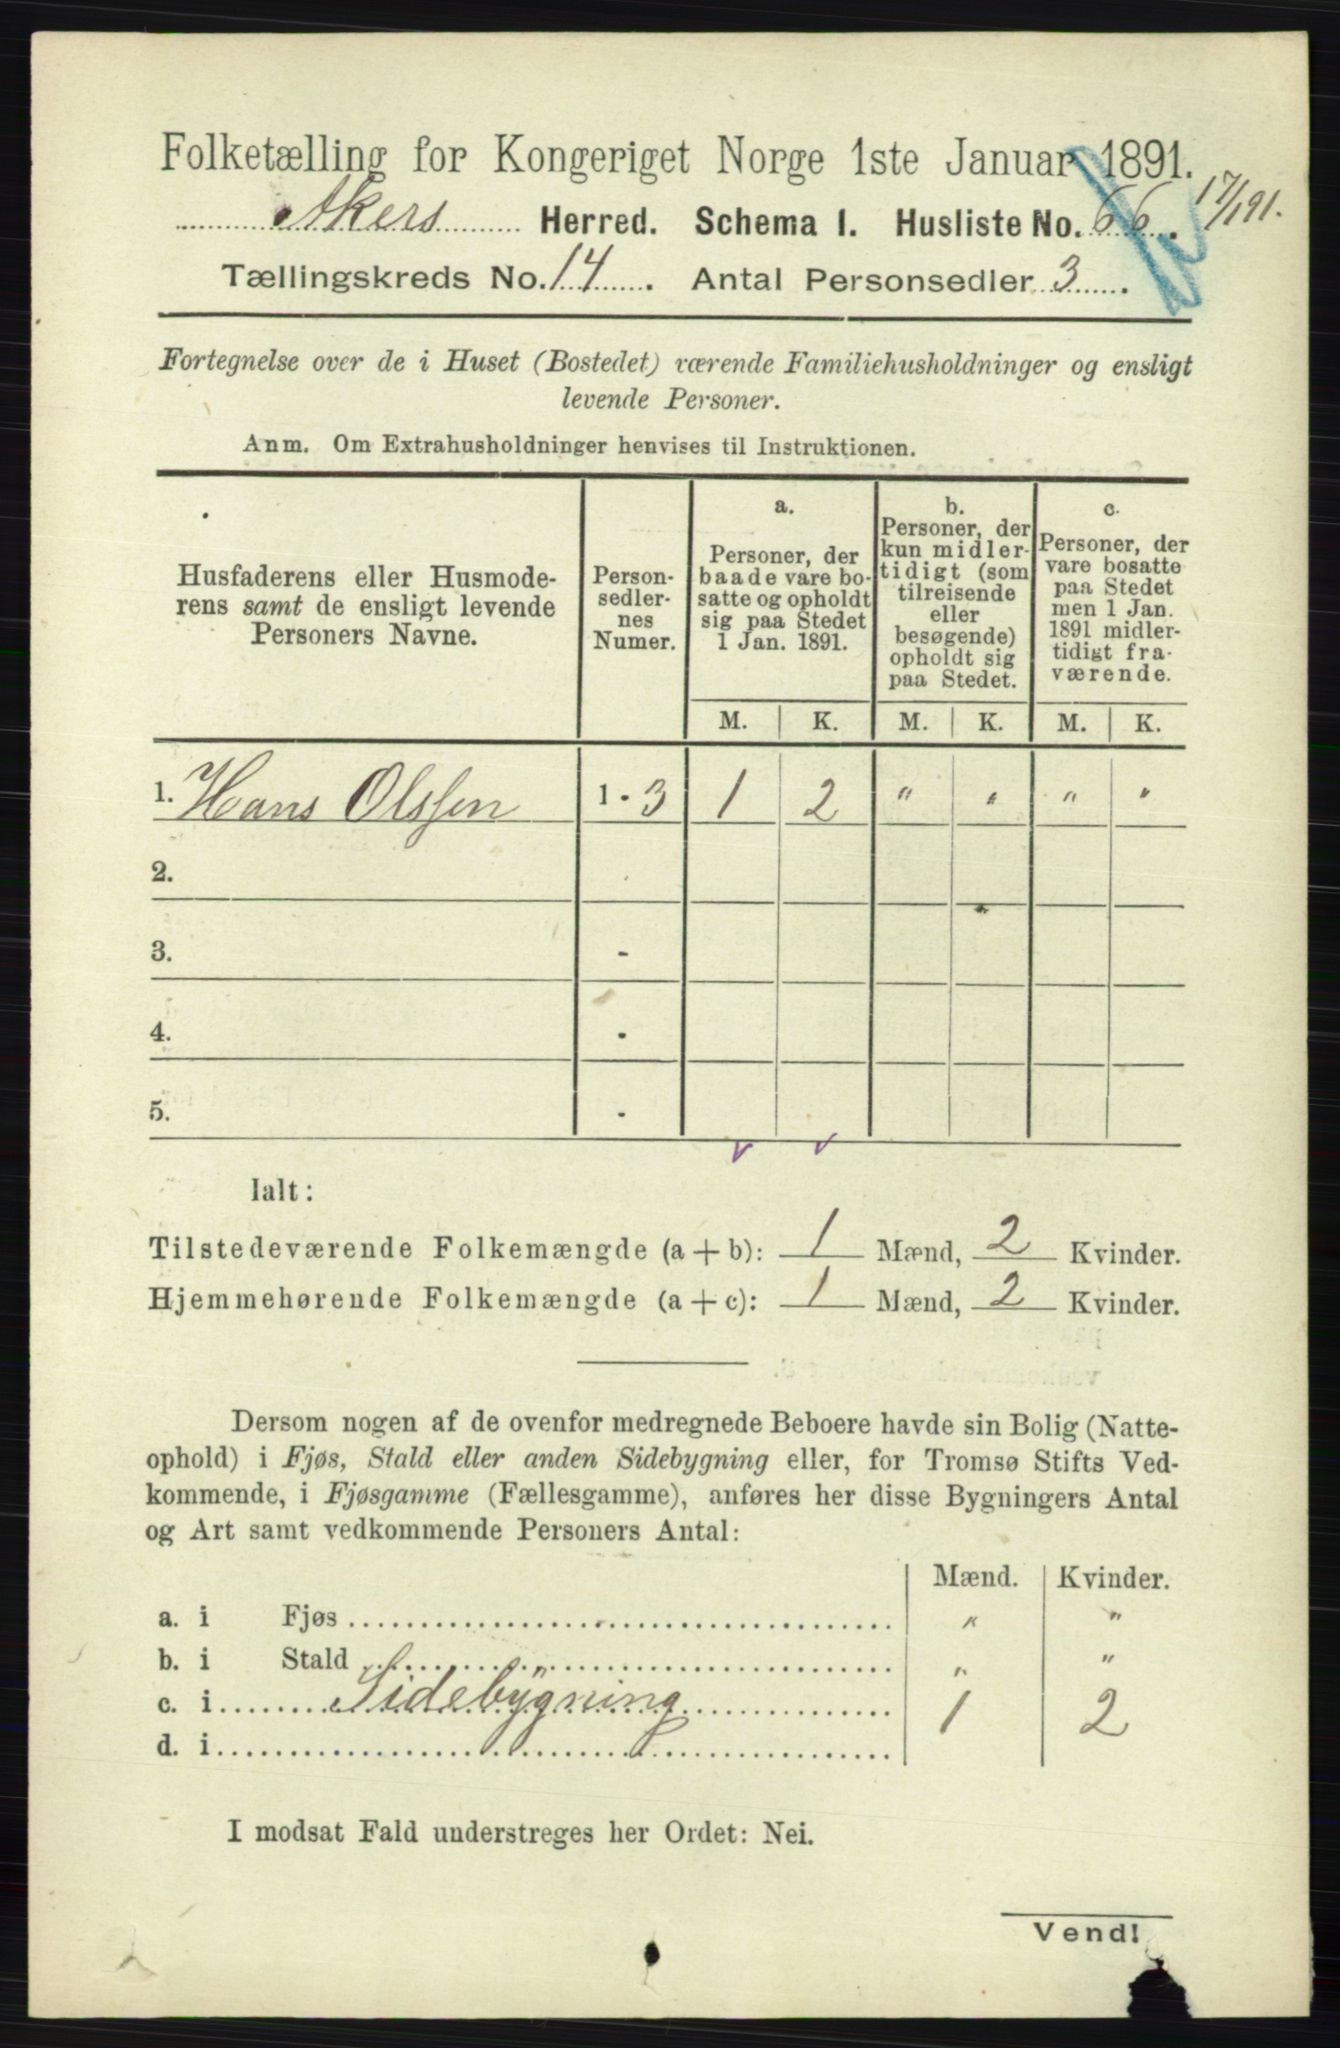 Folketælling for Kongeriget Norge 1ste Januar 1891.
Akers Herred. Schema I. Husliste No. 66. 17/1 91.
Tællingskreds No. 14. Antal Personsedler 3.
Fortegnelse over de i Huset (Bostedet) værende Familiehusholdninger og ensligt
levende Personer.
Anm. Om Extrahusholdninger henvises til Instruktionen.
Husfaderens eller Husmode-
rens samt de ensligt levende
Personers Navne.
Person-
sedler-
nes
Numer.
a.
Personer, der
baade vare bo-
satte og opholdt
sig paa Stedet
1 Jan. 1891.
b.
Personer, der
kun midler-
tidigt (som
tilreisende
eller
besøgende)
opholdt sig
paa Stedet.
c.
Personer, der
vare bosatte
paa Stedet
men 1 Jan.
1891 midler-
tidigt fra-
værende.
M. K. M. K. M. K.
1. Hans Olssen 1 - 3 1 2 " " " "
2.
3. -
4. -
5. -
Ialt:
Tilstedeværende Folkemængde (a + b): 1 Mænd, 2 Kvinder.
Hjemmehørende Folkemængde (a + c): 1 Mænd, 2 Kvinder.
Dersom nogen af de ovenfor medregnede Beboere havde sin Bolig (Natte-
ophold) i Fjøs, Stald eller anden Sidebygning eller, for Tromsø Stifts Ved-
kommende, i Fjøsgamme (Fællesgamme), anføres her disse Bygningers Antal
og Art samt vedkommende Personers Antal:
Mænd. Kvinder.
a. i Fjøs " "
b. i Stald " "
c. i Sidebygning 1 2
d. i
I modsat Fald understreges her Ordet: Nei.
Vend!